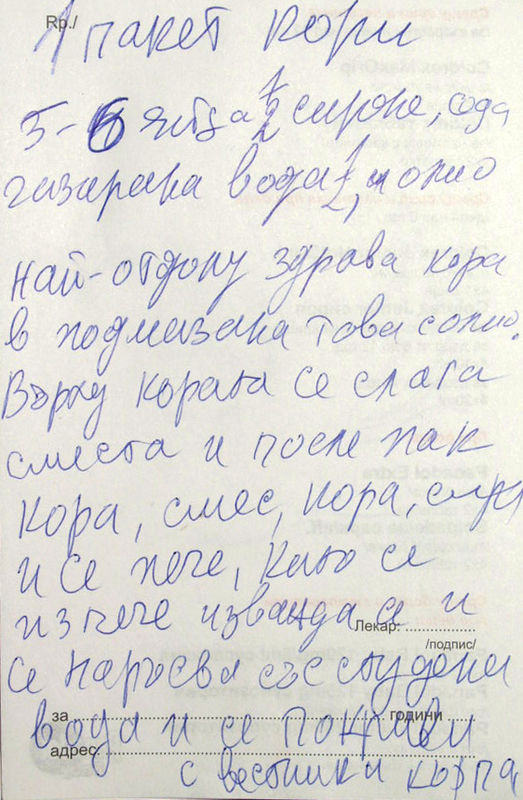 Rp./
1 пакет кори
5-6 яйца 1/2 сирене, сода
газирана вода 1/2, олио
най-отдолу здрава кора
в подмазана тава с олио.
Върху кората се слага
сместа и после пак
кора, смес, кора, смес
и се пече, като се
изпече изважда се и
Лекар:
/подпис/
се наръсва със студена
за години
вода и се покрива
адрес
с вестник и кърпа